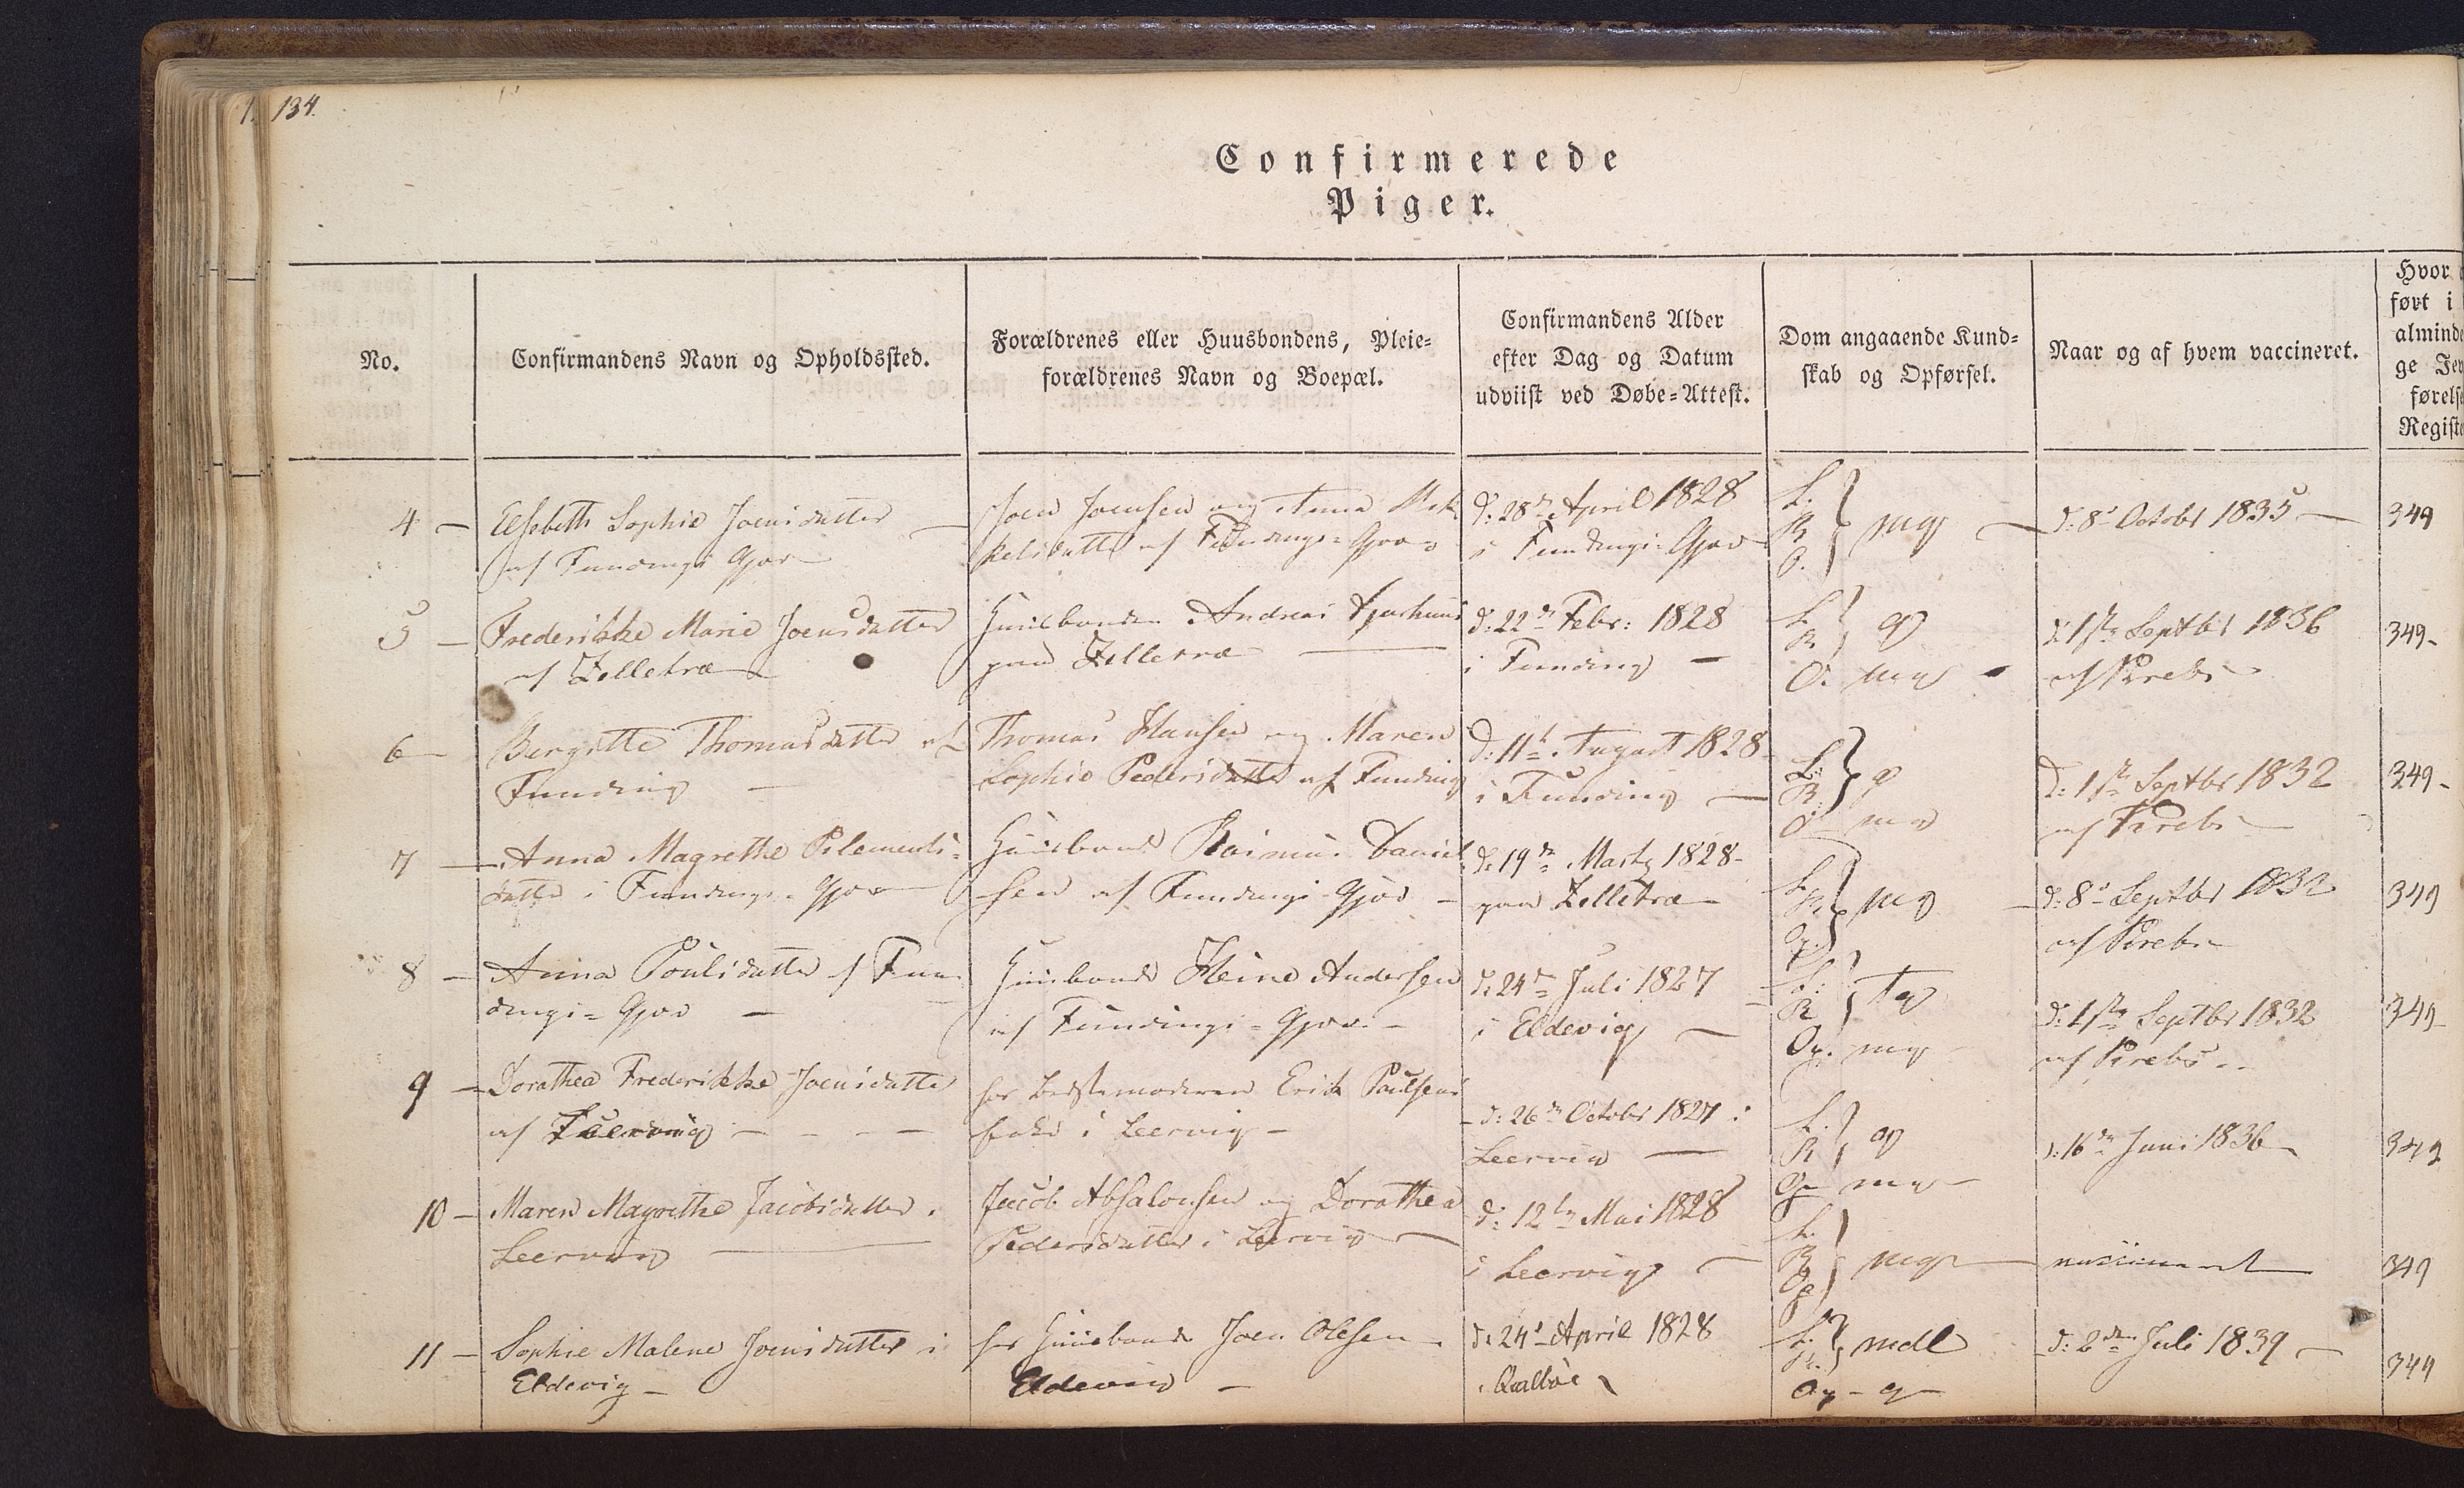 134.
Confirmerede
Piger.
No.
Confirmandens Navn og Opholdssted.
Forældrenes eller Huusbondens, Pleie=
forældrenes Navn og Boepæl.
Confirmandens Alder
efter Dag og Datum
udviist ved Døbe=Attest.
Dom angaaende Kund=
skab og Opførsel.
Naar og af hvem vaccineret.
Hvor
ført i
alminde
ge Jev
førelse
Registe
4 — Elsebeth Sophie Joensdatter —
af Fundings Gjov —
Joen Joensen og Anna Mik
kelsdatter af Fundings=Gjov
d: 28de April 1828
i Fundings=Gjov
L.
R
O.
mg —
d: 8de Octobr 1835 —
349
5 — Frederikke Marie Joensdatter
af Zelletræ
Huusbonden Andreas
paa Zelletræ —
d: 22de Febr: 1828
i Funding —
L.
R
g
O. mg
d: 1ste Septbr 1836
af Krebs
349-
6 — Bergitte Thomasdatter af
Funding —
Thomas Hansen og Maren
Sophie Pedersdatter af Funding
d: 11te August 1828
i Funding —
L:
R:
g
O mg
d: 1ste Septbr 1832
af Krebs —
349-
7 — Anna Magrethe Klements=
datter i Fundings=Gjov
Huusbond Rasmus Daniel
sen af Fundings Gjov —
d: 19de Marts 1828-
paa Zelletræ —
L.
R
Op.
mg
d: 8de Septbr 1832
af Krebs
349
8 — Anna Poulsdatter af Fun
dings=Gjov —
Huusbond Heine Andersen
af Fundings=Gjov —
d: 24de Juli 1827
i Eldevig —
L:
R
Tg
Op. mg
d: 1ste Septbr 1832
af Krebs
349
9 — Dorathea Frederikke Joensdatter
af Leervig —
hos Bedstemoderen Erik Poulsens
Enke i Leervig —
d: 26de Octobr 1827 i
Leervig —
L.
R
g
Op mg —
d: 16de Juni 1836
349
10 — Maren Magrethe Jacobsdatter i
Leervig —
Jacob Absalonsen og Dorathea
Pedersdatter i Leervig —
d: 12te Mai 1828
i Leervig —
L.
R
Op
mg —
vaccineret
349
11 — Sophie Malene Joensdatter i
Eldevig —
hos Huusbond Joen Olesen
Eldevig —
d: 24de April 1828
i Qvalbøe
L.
R.
mdl
Op — g —
d: 2den Juli 1839 —
349